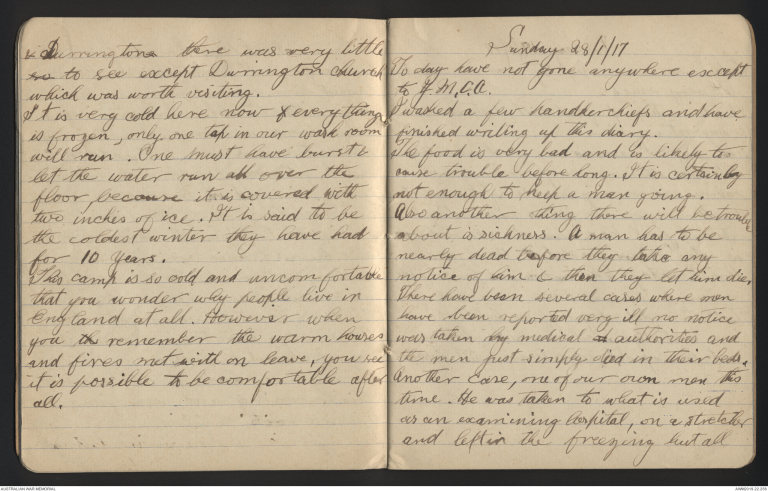 Durrington there was very little
to see except Durrington church
which was worth visiting.
It is very cold here now & everything
is frozen, only one tap in our wash room
will run. One must have burst &
let the water run all over the
floor, because it is covered with
two inches of ice. It is said to be
the coldest winter they have had
for 10 years.
This camp is so cold and uncomfortable
that you wonder why people live in
England at all. However when
you remember the warm houses
and fires met with on leave, you see
it is possible to be comfortable after
all.
Sunday 28/1/17
To day have not gone anywhere except
to Y.M.C.A.
I washed a few handkerchiefs and have
finished writing up this diary.
The food is very bad and is likely to
cause trouble before long. It is certainly
not enough to keep a man going.
Also another thing there will be trouble
about is sickness. A man has to be
nearly dead before they take any
notice of him & then they let him die.
There have been several cases where men
have been reported very ill no notice
was taken by medical authorities and
the men just simply died in their beds.
Another case, one of our own men this
time. He was taken to what is used
as an examining hospital, on a stretcher
and left in the freezing hut all
AUSTRALIAN WAR MEMORIAL